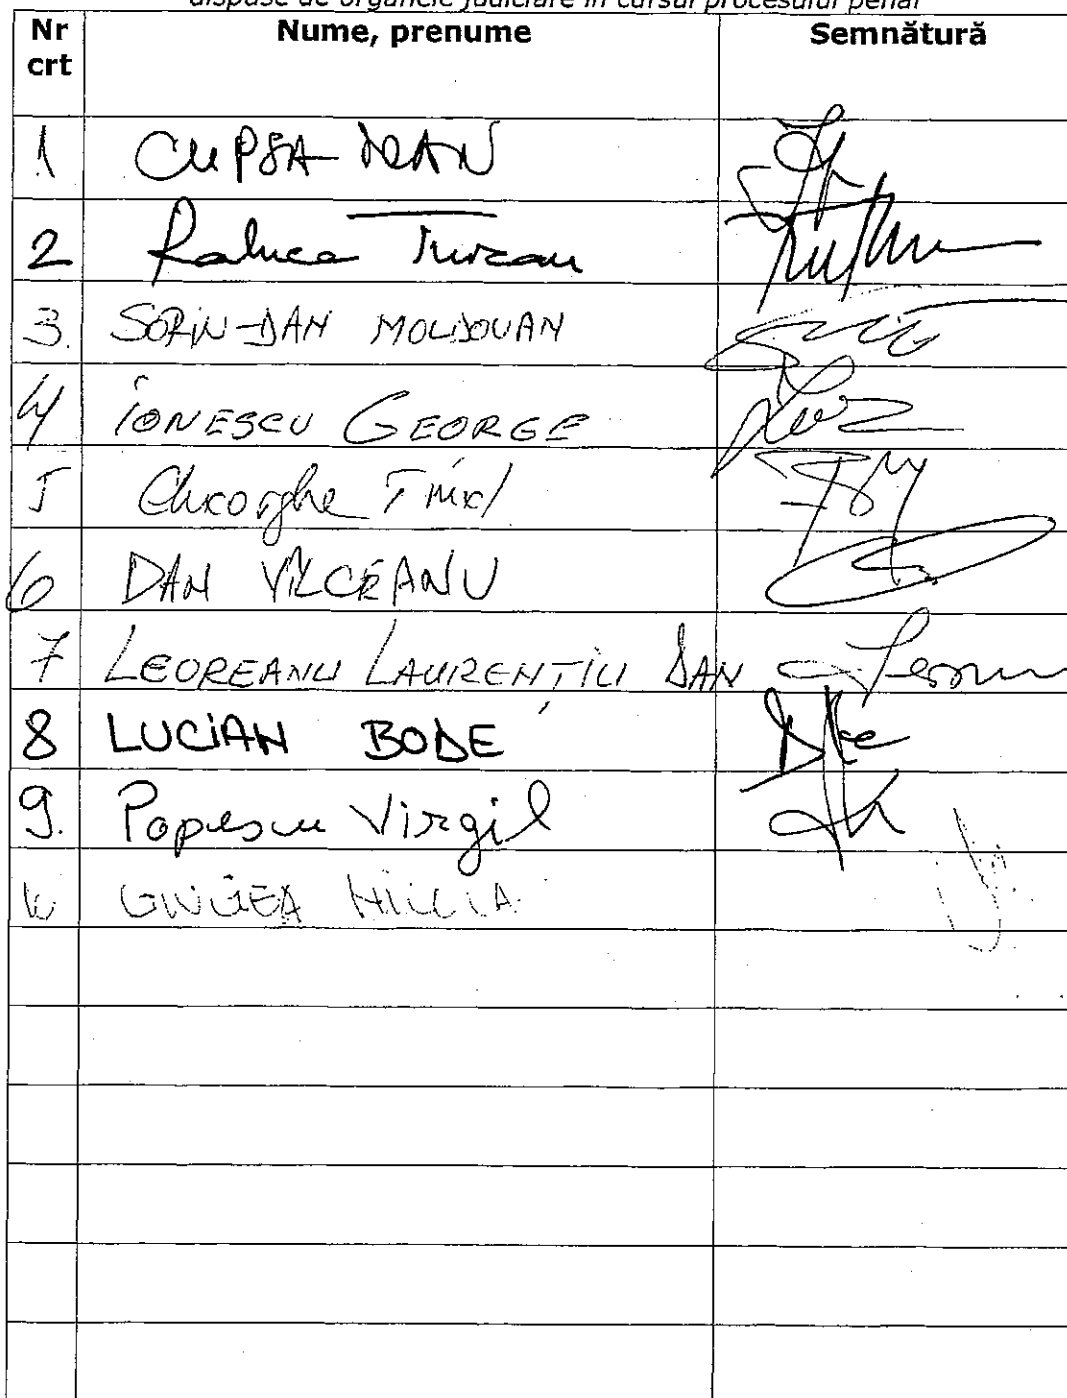 dispuse de organele judiciare în cursul procesului penal
Nr crt Nume, prenume Semnătură
1 CUPȘA IOAN
2 Raluca Turcan
3. SORIN-DAN MOLDOVAN
4 IONESCU GEORGE
5 Gheorghe Tinel
6 DAN VÎLCEANU
7 LEOREANU LAURENȚIU DAN
8 LUCIAN BODE
9. Popescu Virgil
10